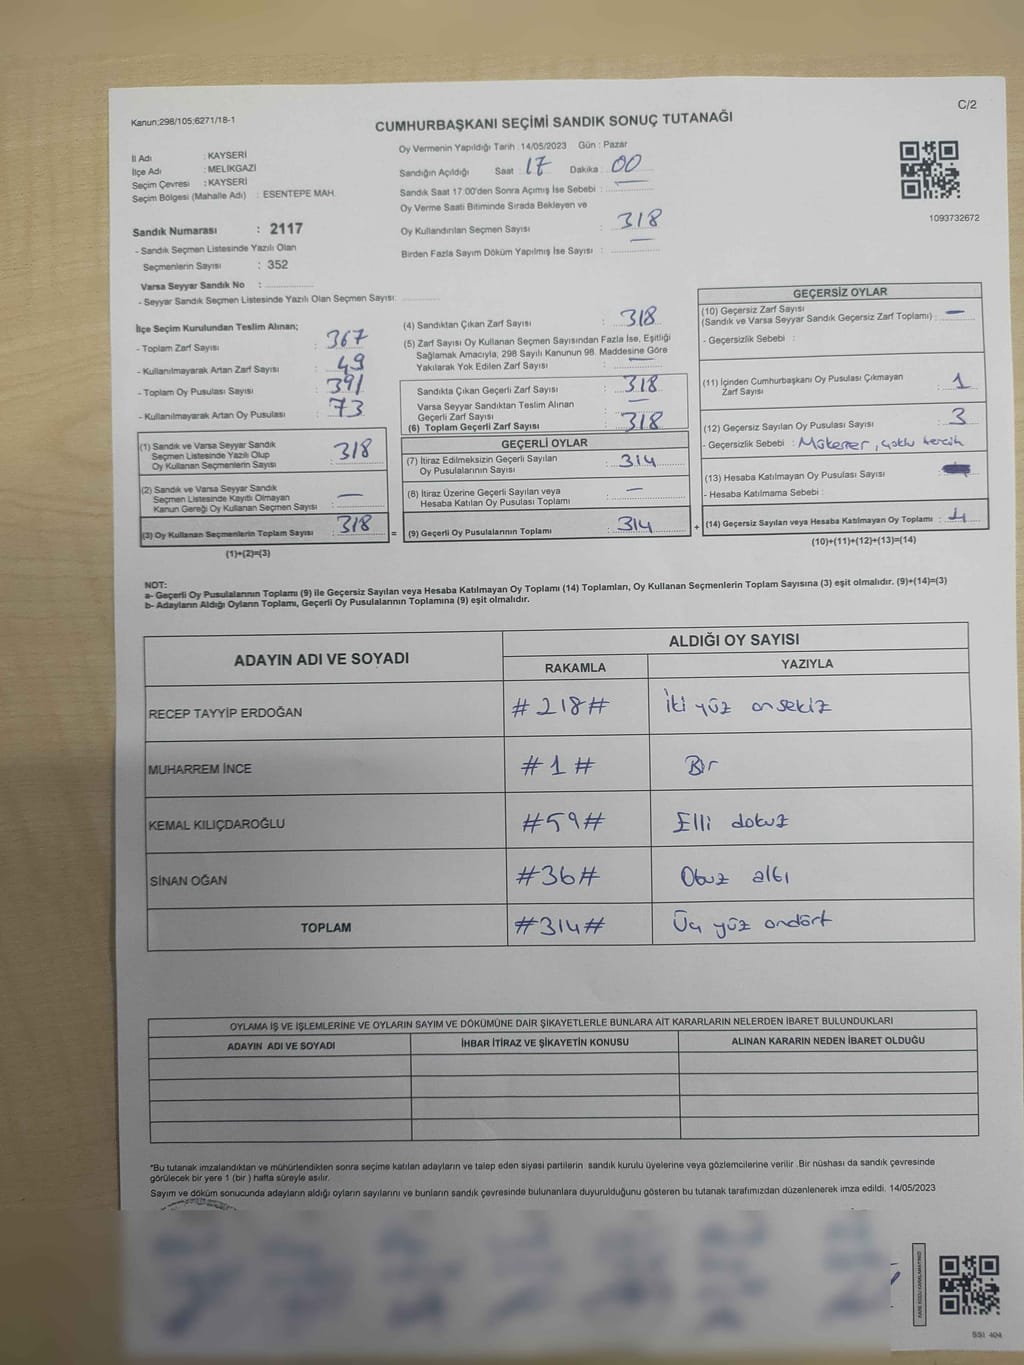 C/2
Kanun:298/105;6271/18-1
CUMHURBAŞKANI SEÇİMİ SANDIK SONUÇ TUTANAĞI
İl Adı : KAYSERİ
İlçe Adı : MELİKGAZİ
Seçim Çevresi : KAYSERİ
Seçim Bölgesi (Mahalle Adı) : ESENTEPE MAH.
Sandık Numarası : 2117
- Sandık Seçmen Listesinde Yazılı Olan
Seçmenlerin Sayısı : 352
Varsa Seyyar Sandık No :
- Seyyar Sandık Seçmen Listesinde Yazılı Olan Seçmen Sayısı:
Oy Vermenin Yapıldığı Tarih :14/05/2023 Gün : Pazar
Sandığın Açıldığı Saat : 17 Dakika : 00
Sandık Saat 17:00'den Sonra Açımış İse Sebebi : —
Oy Verme Saati Bitiminde Sırada Bekleyen ve
Oy Kullandırılan Seçmen Sayısı : 318
Birden Fazla Sayım Döküm Yapılmış İse Sayısı : —
1093732672
İlçe Seçim Kurulundan Teslim Alınan;
- Toplam Zarf Sayısı : 367
- Kullanılmayarak Artan Zarf Sayısı : 49
- Toplam Oy Pusulası Sayısı : 391
- Kullanılmayarak Artan Oy Pusulası : 73
(1) Sandık ve Varsa Seyyar Sandık
Seçmen Listesinde Yazılı Olup
Oy Kullanan Seçmenlerin Sayısı : 318
(2) Sandık ve Varsa Seyyar Sandık
Seçmen Listesinde Kayıtlı Olmayan
Kanun Gereği Oy Kullanan Seçmen Sayısı : —
(3) Oy Kullanan Seçmenlerin Toplam Sayısı : 318
(1)+(2)=(3)
(4) Sandıktan Çıkan Zarf Sayısı : 318
(5) Zarf Sayısı Oy Kullanan Seçmen Sayısından Fazla İse, Eşitliği
Sağlamak Amacıyla, 298 Sayılı Kanunun 98. Maddesine Göre
Yakılarak Yok Edilen Zarf Sayısı : —
Sandıkta Çıkan Geçerli Zarf Sayısı : 318
Varsa Seyyar Sandıktan Teslim Alınan
Geçerli Zarf Sayısı : —
(6) Toplam Geçerli Zarf Sayısı : 318
GEÇERLİ OYLAR
(7) İtiraz Edilmeksizin Geçerli Sayılan
Oy Pusulalarının Sayısı : 314
(8) İtiraz Üzerine Geçerli Sayılan veya
Hesaba Katılan Oy Pusulası Toplamı : —
= (9) Geçerli Oy Pusulalarının Toplamı : 314
GEÇERSİZ OYLAR
(10) Geçersiz Zarf Sayısı
(Sandık ve Varsa Seyyar Sandık Geçersiz Zarf Toplamı) : —
- Geçersizlik Sebebi :
(11) İçinden Cumhurbaşkanı Oy Pusulası Çıkmayan
Zarf Sayısı : 1
(12) Geçersiz Sayılan Oy Pusulası Sayısı : 3
- Geçersizlik Sebebi : Mükerrer, çoklu tercih
(13) Hesaba Katılmayan Oy Pusulası Sayısı :
- Hesaba Katılmama Sebebi :
+ (14) Geçersiz Sayılan veya Hesaba Katılmayan Oy Toplamı : 4
(10)+(11)+(12)+(13)=(14)
NOT:
a- Geçerli Oy Pusulalarının Toplamı (9) ile Geçersiz Sayılan veya Hesaba Katılmayan Oy Toplamı (14) Toplamları, Oy Kullanan Seçmenlerin Toplam Sayısına (3) eşit olmalıdır. (9)+(14)=(3)
b- Adayların Aldığı Oyların Toplamı, Geçerli Oy Pusulalarının Toplamına (9) eşit olmalıdır.
ADAYIN ADI VE SOYADI
ALDIĞI OY SAYISI
RAKAMLA YAZIYLA
RECEP TAYYİP ERDOĞAN #218# İki yüz onsekiz
MUHARREM İNCE #1# Bir
KEMAL KILIÇDAROĞLU #59# Elli dokuz
SİNAN OĞAN #36# Otuz altı
TOPLAM #314# Üç yüz ondört
OYLAMA İŞ VE İŞLEMLERİNE VE OYLARIN SAYIM VE DÖKÜMÜNE DAİR ŞİKAYETLERLE BUNLARA AİT KARARLARIN NELERDEN İBARET BULUNDUKLARI
ADAYIN ADI VE SOYADI İHBAR İTİRAZ VE ŞİKAYETİN KONUSU ALINAN KARARIN NEDEN İBARET OLDUĞU
*Bu tutanak imzalandıktan ve mühürlendikten sonra seçime katılan adayların ve talep eden siyasi partilerin sandık kurulu üyelerine veya gözlemcilerine verilir .Bir nüshası da sandık çevresinde
görülecek bir yere 1 (bir ) hafta süreyle asılır.
Sayım ve döküm sonucunda adayların aldığı oyların sayılarını ve bunların sandık çevresinde bulunanlara duyurulduğunu gösteren bu tutanak tarafımızdan düzenlenerek imza edildi. 14/05/2023